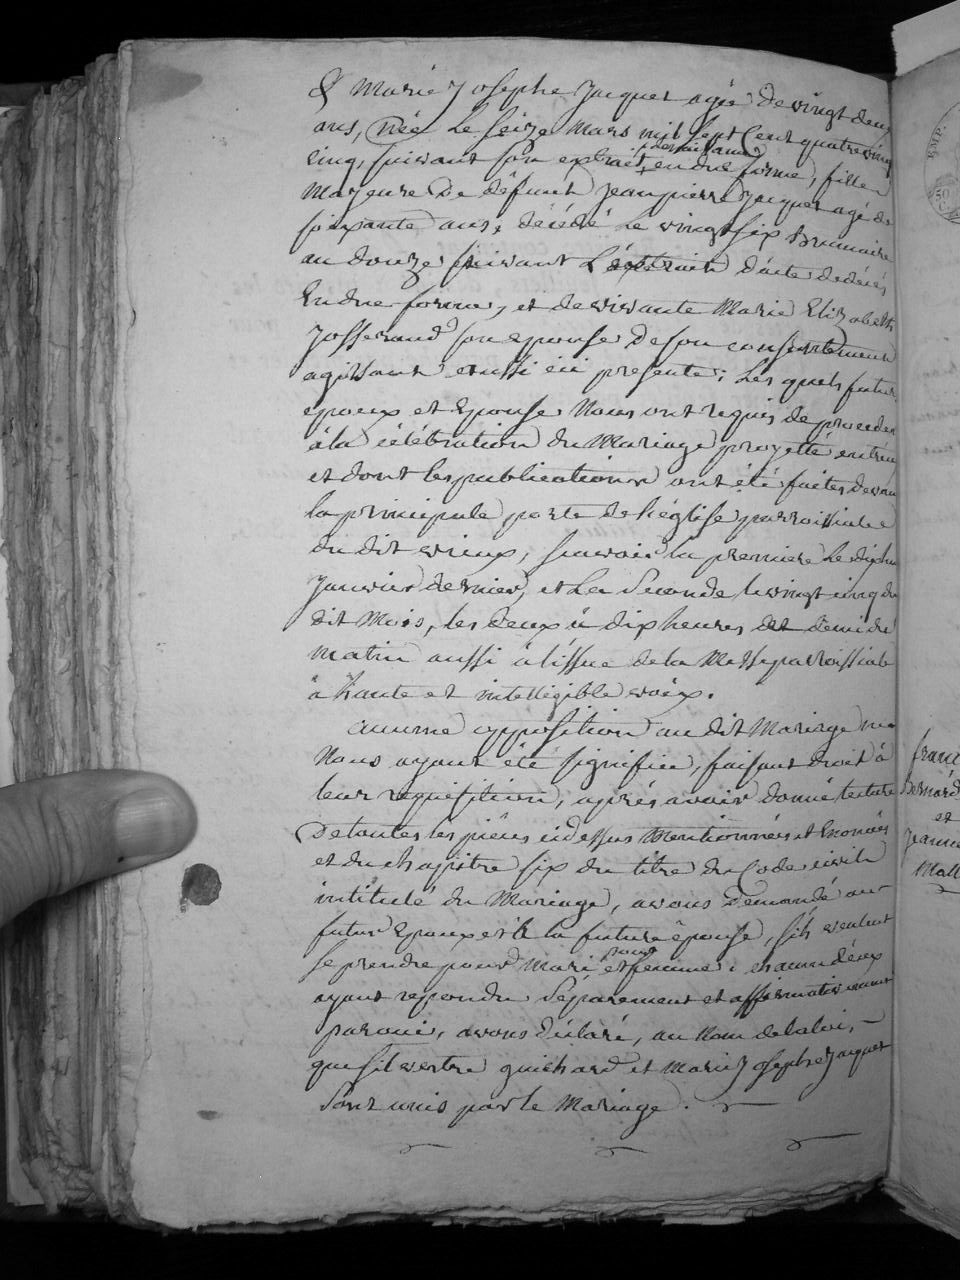 & Marie Josephe Jacquet agée de vingt deux
ans, née le seize mars mil sept cent quatrevingt
cinq, suivant son extrait, en due forme, fille
Mayeure de défunt Jeanpierre Jacquet agé de
soixante ans, décédé le vingt six Brumaire
an douze suivant L'extrait d'acte de décés
En due forme, et de vivante Marie Elizabeth
Josserand son epouse de son consentement
agissant aussi ici presente; Les quels futurs
epoux et Epouse Nous ont requis de proceder
à la célébration du Mariage projetté entr'eux
et dont les publications ont été faites devant
la principale porte de l'église parroissiale
du dit vrieux, savoir la premiere le dixhuit
Janvier dernier, et La Seconde le vingt cinq du
dit Mois, les deux à dix heures et demi du
matin aussi à l'issue de la Messe parroissiale
à haute et intellegible voix.
aucune opposition au dit Mariage ne
Nous ayant été signifiée, faisant droit à
leur requisition, aprés avoir donné lecture
De toutes les piéces cidessus Mentionnées et Enoncées
et du chapitre six du titre du Code civil
intitulé du Mariage, avons demandé au
futur Epoux et à la future épouse, s'ils veulent
se prendre pour mari et pour femme: chacun d'eux
ayant repondu Séparement et affirmativement
par oui, avons déclaré, au Nom de la loi,
que Silvestre guichard et Marie Josephe Jacquet
sont unis par le Mariage.
Bernard
et
Jeanne
Mall